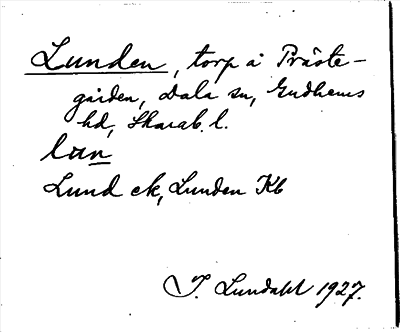 Lunden, torp å Präste-
gården, Dala sn, Gudhems
hd, Skarab. l.
Lund ek, Lunden Kb
I. Lundahl 1927.